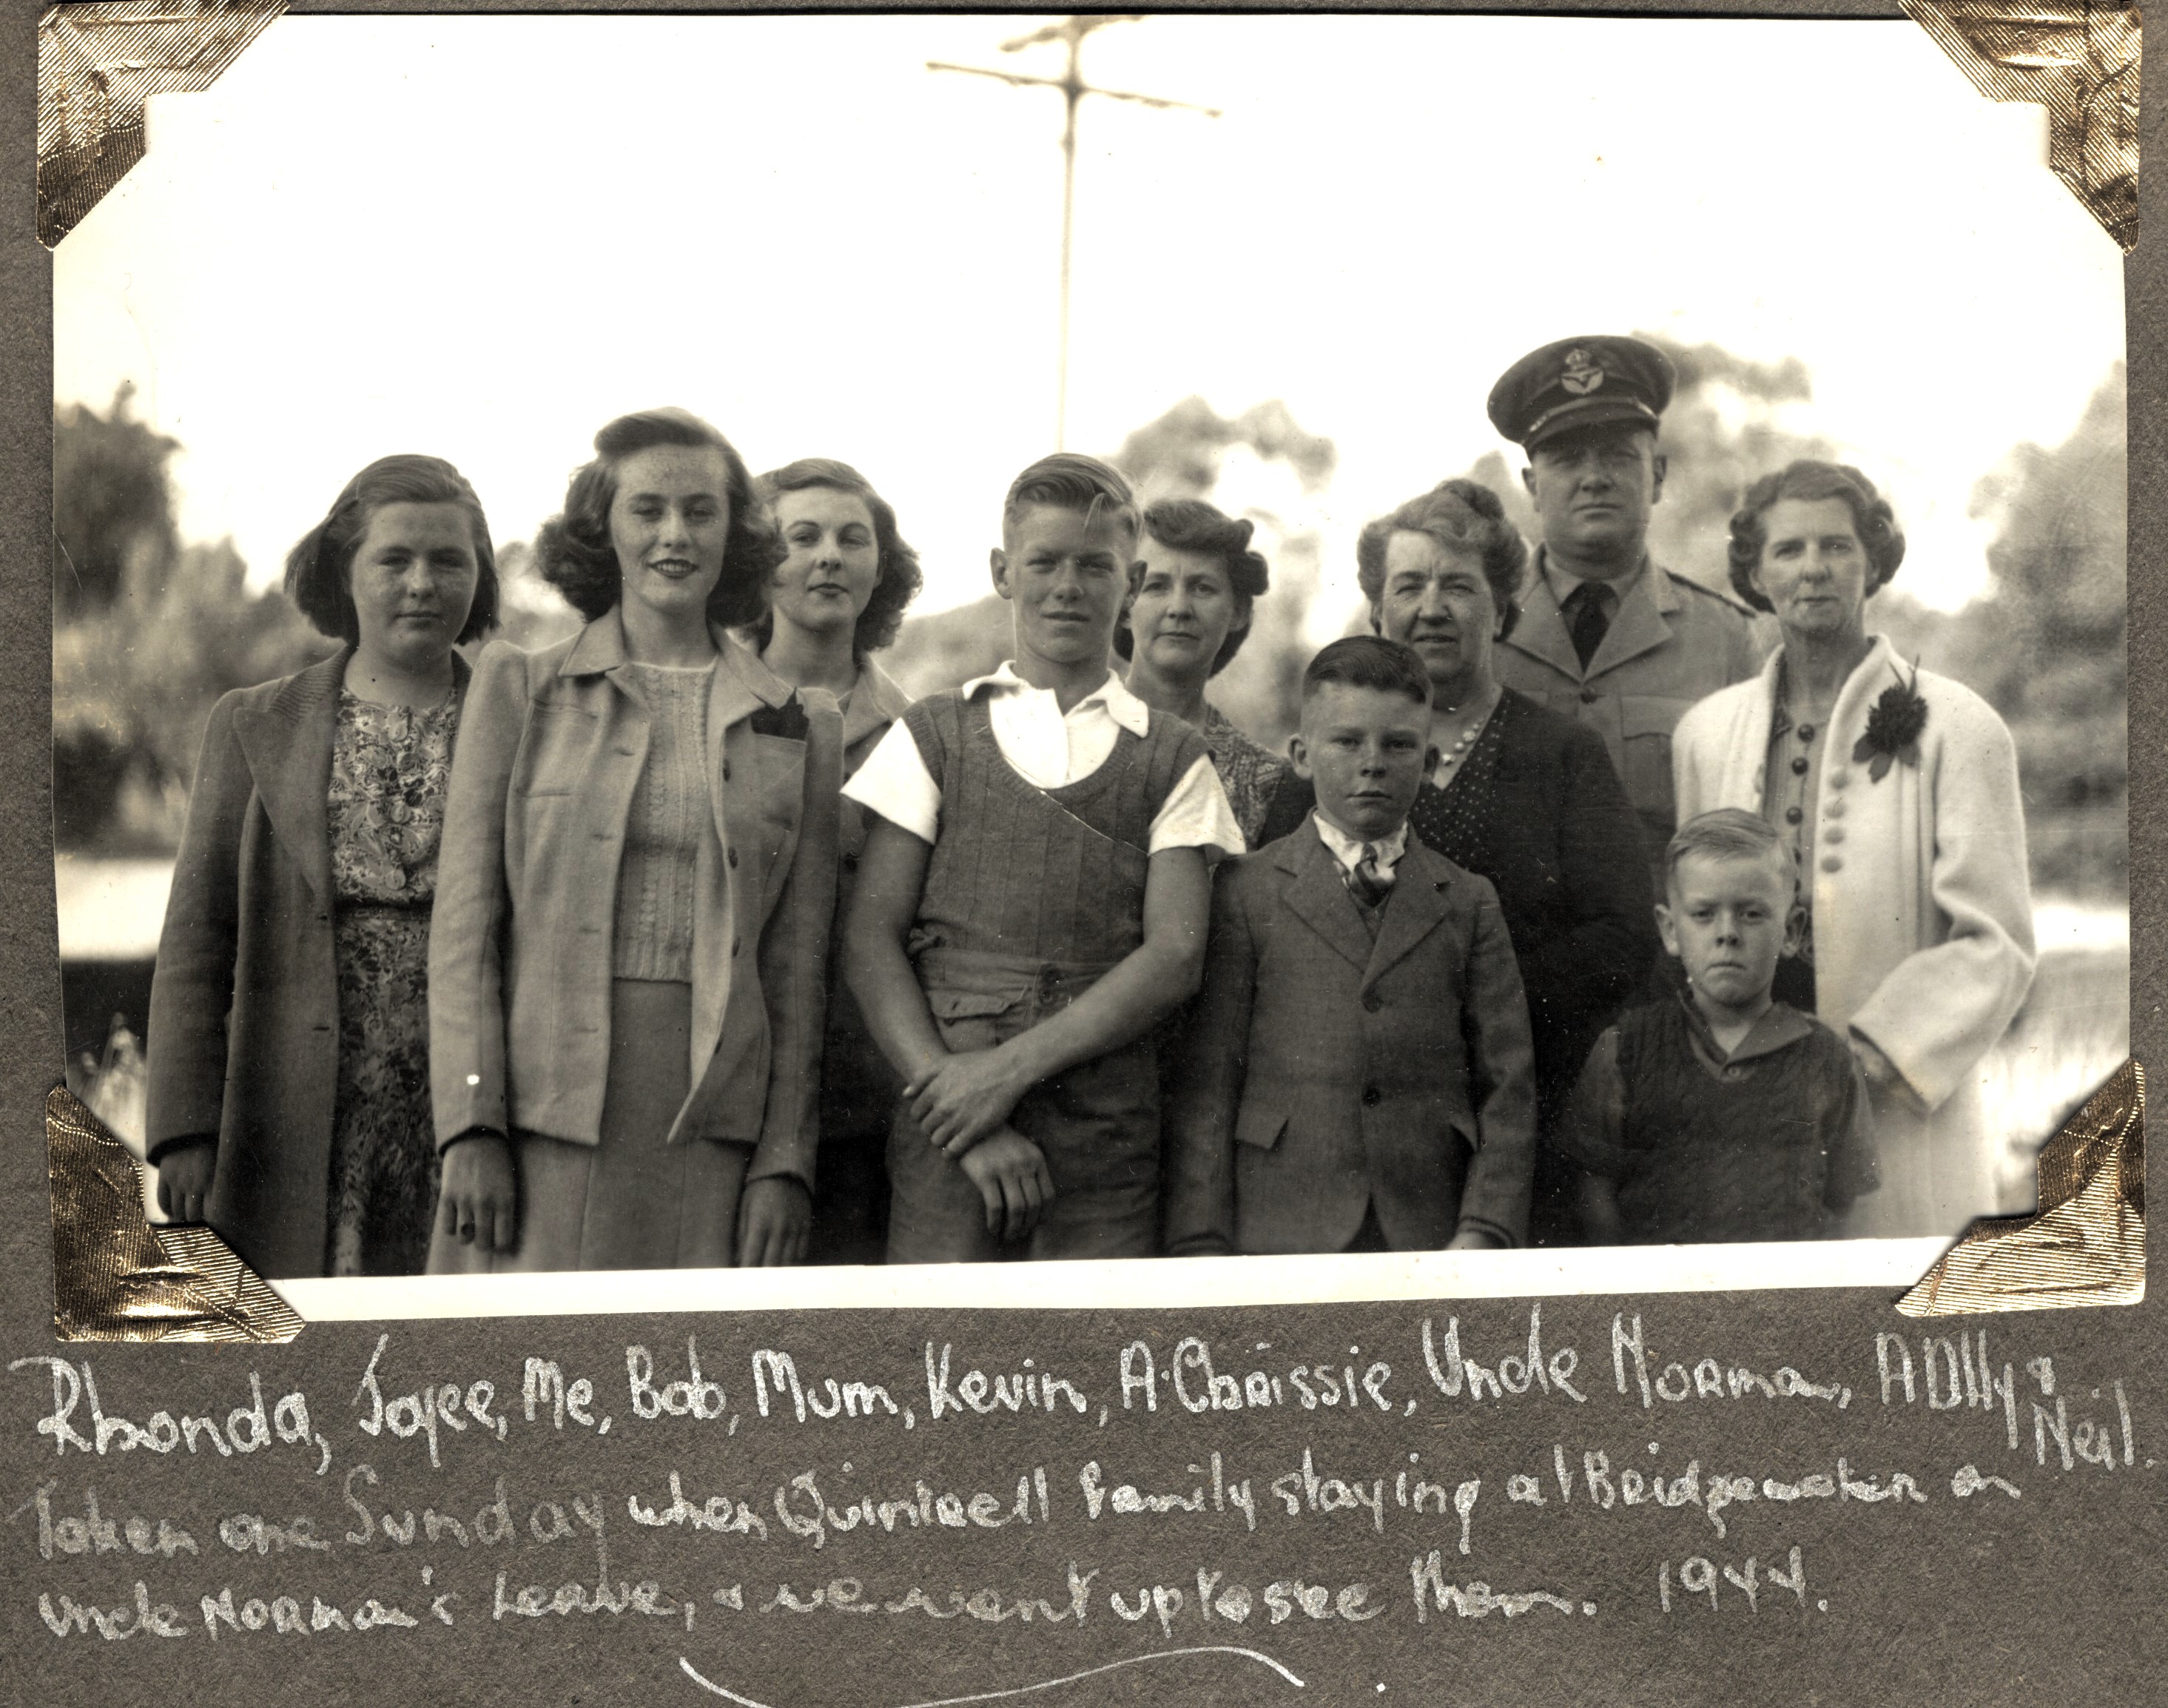 Rhonda, Joyce, Me, Bob, Mum, Kevin, A. Chrissie, Uncle Norman, A Dlly &
Neil.
Taken one Sunday when Quintrell family staying at Bridgewater on
Uncle Norman's Leave, & we went up to see them. 1944.